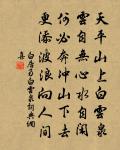 天平山上白雲泉
雲自無心水自閑
何必奔沖山下去
更添波浪向人間
白居易句白雲泉詞典網
集